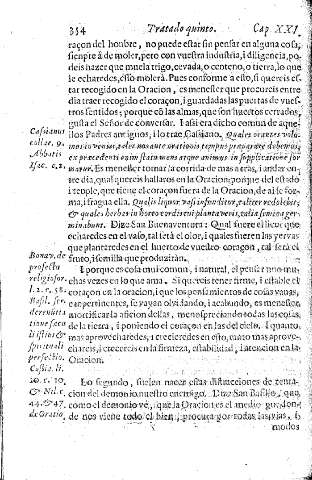 354 Tratado quinto. Cap XXI.
raçon del hombre, no puede estar sin pensar en alguna cosa,
siempre á de moler, pero con vuestra industria, i diligencia, podeis
hazer que muela trigo, cevada, o centeno, o tierra, lo que
le echaredes, esso molerá. Pues conforme a esto, si quereis estar
recogido en la Oracion, es menester que procureis entre
dia traer recogido el coraçon, i guardadas las puertas de vuestros
sentidos; porque cō las almas, que son huertos cerrados,
gusta el Señor de conversar. I assi era dicho comun de aquellos
Padres antiguos, i lo trae Cassiano.
Es menester tomar la corrida de mas atras, i andar entre
dia, qual quereis hallaros en la Oracion; porque del estado
i temple, que tiene el coraçon fuera de la Oracion, de aí se forma,
i fragua ella. Qualis liquor vasi infunditur, taliter redolebit;
& quales herbas in horto cordis tui plantaveris, talia semina germinabunt.
Dize San Buenaventura: Qual fuere el licor que
echaredes en el vaso, tal será el olor, i quales fueren las yervas
que plantaredes en el huerto de vuestro coraçon, tal será el
fruto, i semilla que produzirán.
I porque es cosa mui comun, i natural, el pensar uno muchas
vezes en lo que ama. Si quereis tener firme, i estable el
coraçon en la oracion, i que los pensamientos de cosas vanas,
e impertinentes, se vayan olvidando, i acabando, es menester
mortificar la aficion dellas, menospreciando todas las cosas
de la tierra, i poniendo el coraçon en las del cielo. I quanto
mas aprovecharedes, i crecieredes en esto, tanto mas aprovechareis,
i crecereis en la firmeza, estabilidad, i atencion en la
Oracion.
Lo segundo, suelen nacer estas distracciones de tentacion
del demonio nuestro enemigo. Dize San Basilio, que
como el demonio vé, que la Oracion es el medio por donde
nos viene todo el bien, procura por todas las vias, i
modos
Cassianus
collat. 9.
Abbatis
Isac. c. 2.
Bonav. de
profectu
religiosor.
l. 2. c. 58.
Basil. ser.
spirituali
perfectio.